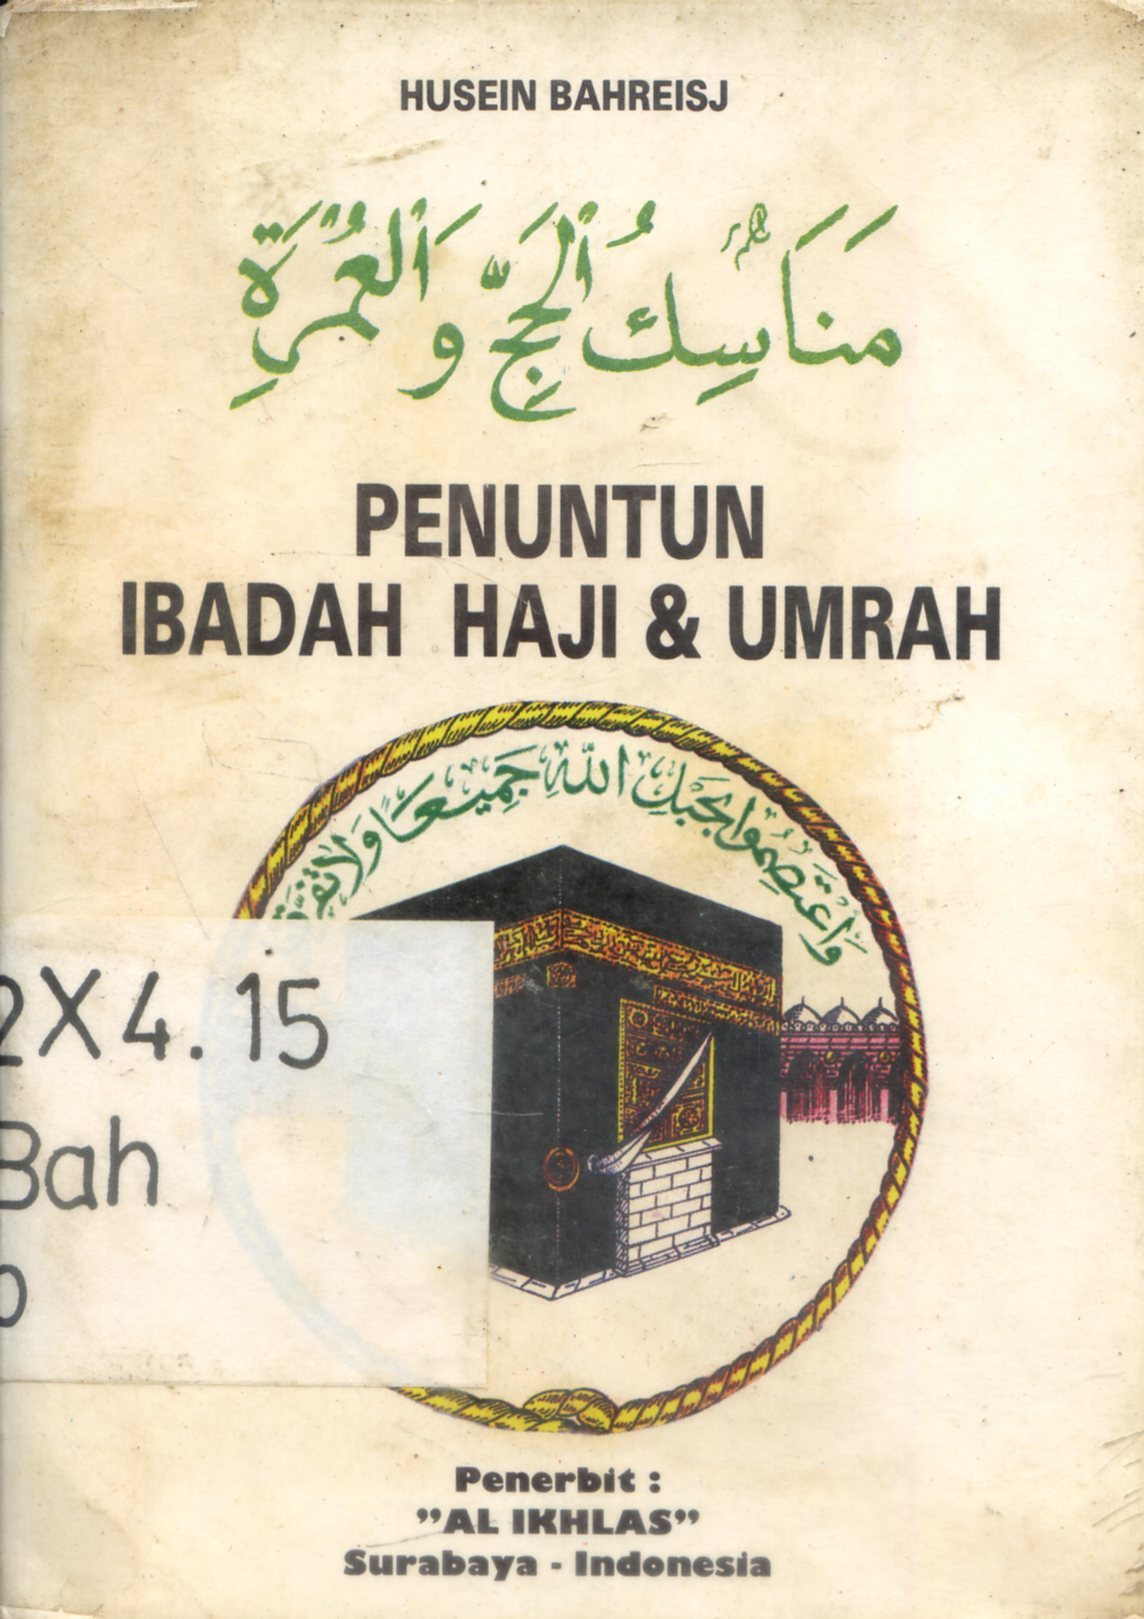 HUSEIN BAHREISJ
مَنَاسِكُ الْحَجِّ وَالْعُمْرَةِ
PENUNTUN
IBADAH HAJI & UMRAH
وَاعْتَصِمُوا بِحَبْلِ اللَّهِ جَمِيعًا وَلَا
2X4.15
Bah
Penerbit :
"AL IKHLAS"
Surabaya - Indonesia